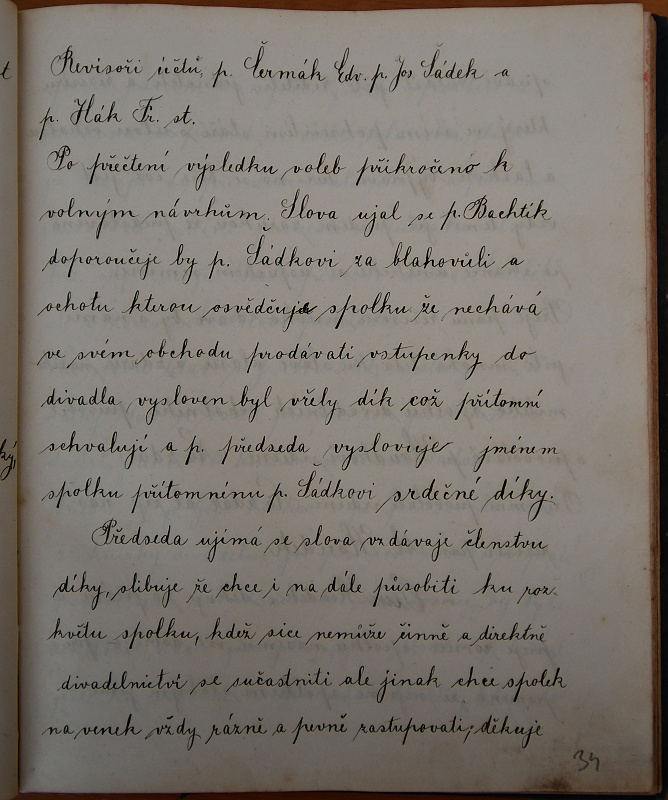 Revisoři účtů, p. Čermák Edv. p. Jos. Šádek a
p. Hák Fr. st.
Po přečtení výsledku voleb přikročeno k
volným návrhům. Slova ujal se p. Bachtík
doporoučeje by p. Šádkovi za blahovůli a
ochotu kterou osvědčuje spolku že nechává
ve svém obchodu prodávati vstupenky do
divadla vysloven byl vřelý dík což přítomní
schvalují a p. předseda vyslovuje jménem
spolku přítomnénu p. Šádkovi srdečné díky.
Předseda ujímá se slova vzdávaje členstvu
díky, slibuje že chce i na dále působiti ku roz-
květu spolku, kdež sice nemůže činně a direktně
divadelnictví se sučastniti ale jinak chce spolek
na venek vždy rázně a pevně zastupovati; děkuje
34